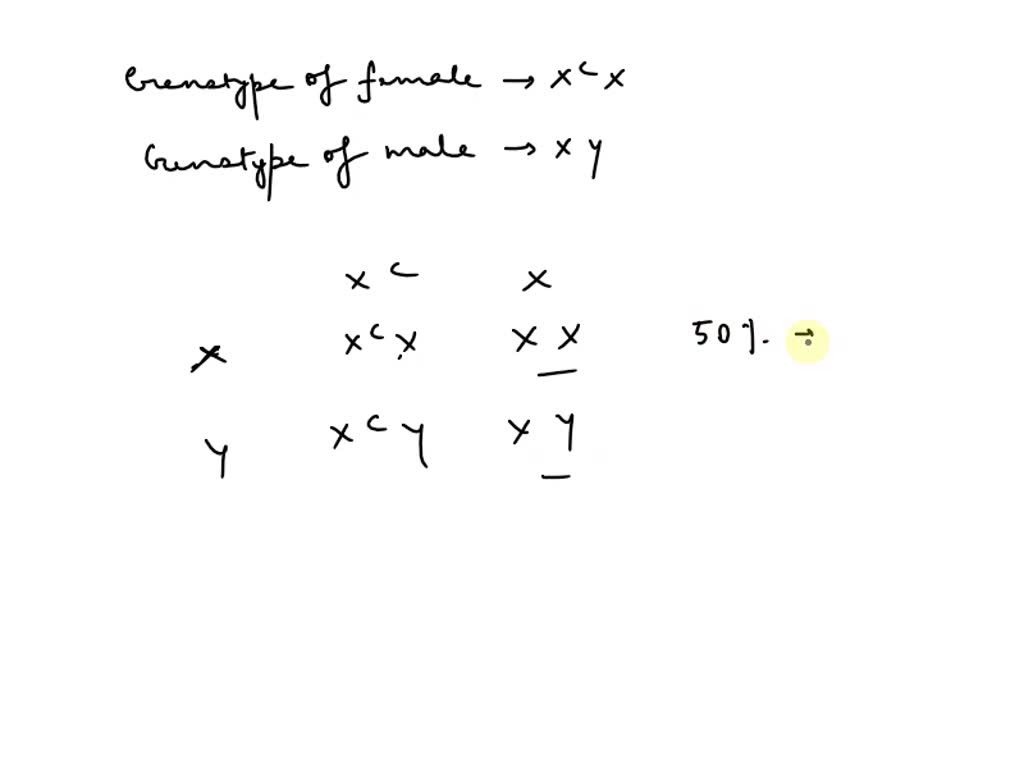 Genotype of female → x^c x
Genotype of male → x y
x^c x
x x^c x x x 50%. →
y x^c y x y